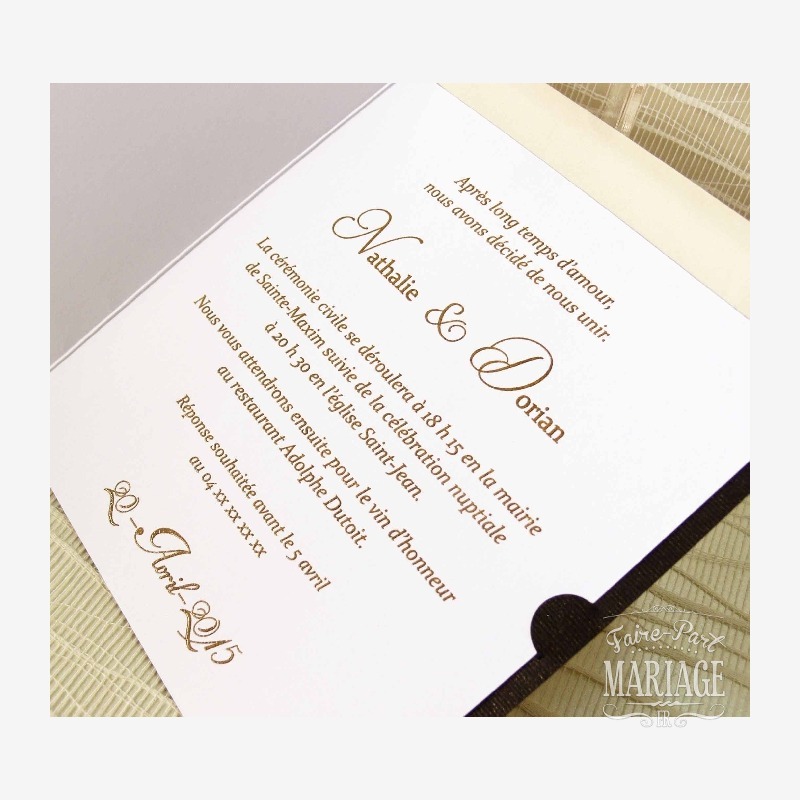 Après long temps d'amour,
nous avons décidé de nous unir.
Nathalie & Dorian
La cérémonie civile se déroulera à 18 h 15 en la mairie
de Sainte-Maxim suivie de la célébration nuptiale
à 20 h 30 en l'église Saint-Jean.
Nous vous attendrons ensuite pour le vin d'honneur
au restaurant Adolphe Dutoit.
Réponse souhaitée avant le 5 avril
au 04 xx xx xx xx
20-Avril-2015
Faire-Part
MARIAGE
FR